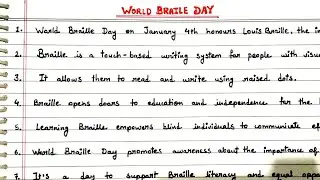 WORLD BRAILE DAY
1. World Braille Day on January 4th honours Louis Braille, the in
2. Braille is a touch-based writing system for people with visu
3. It allows them to read and write using raised dots.
4. Braille opens doors to education and independence for the
5. Learning Braille empowers blind individuals to communicate ef
6. World Braille Day promotes awareness about the importance of
7. It's a day to support Braille literacy and equal oppo